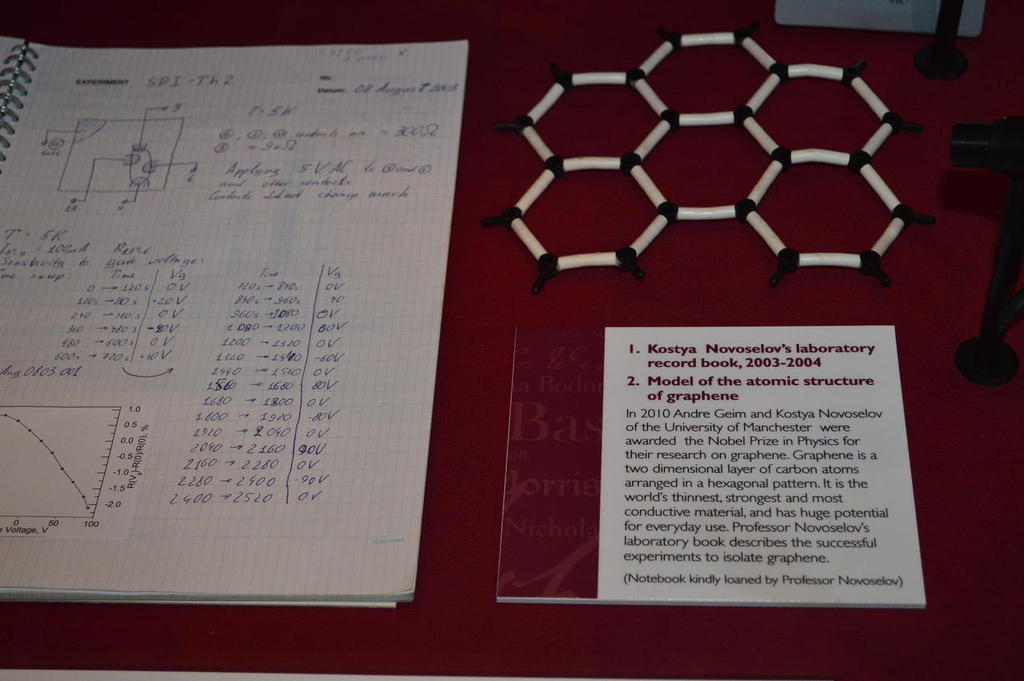 EXPERIMENT SPI-Th2
No.
Datum: 08 August 2003
T = 5K
contacts on ≈ 300Ω
≈ 9kΩ
Applying 5V AC to and
and other contacts
Contacts did not change much
T = 5K
= 100nA
Sensitivity to gate voltage:
Time sweep Time Vg
0 → 120s 0V
120s → 240s +20V
240 → 360s 0V
360 → 480s -20V
480 → 600s 0V
600s → 720s +40V
Aug0803.001
Time Vg
720s → 840s 0V
840s → 960s -40
960s → 1080 0V
1080 → 1200 60V
1200 → 1320 0V
1320 → 1440 -60V
1440 → 1560 0V
1560 → 1680 80V
1680 → 1800 0V
1800 → 1920 -80V
1920 → 2040 0V
2040 → 2160 90V
2160 → 2280 0V
2280 → 2400 -90V
2400 → 2520 0V
1.0
0.5
0.0
-0.5
-1.0
-1.5
-2.0
R(Vg)-R(0)/R(0), %
0 50 100
e Voltage, V
1. Kostya Novoselov's laboratory
record book, 2003-2004
2. Model of the atomic structure
of graphene
In 2010 Andre Geim and Kostya Novoselov
of the University of Manchester were
awarded the Nobel Prize in Physics for
their research on graphene. Graphene is a
two dimensional layer of carbon atoms
arranged in a hexagonal pattern. It is the
world's thinnest, strongest and most
conductive material, and has huge potential
for everyday use. Professor Novoselov's
laboratory book describes the successful
experiments to isolate graphene.
(Notebook kindly loaned by Professor Novoselov)
a Bodon
Bas
on
Morris
Nichola